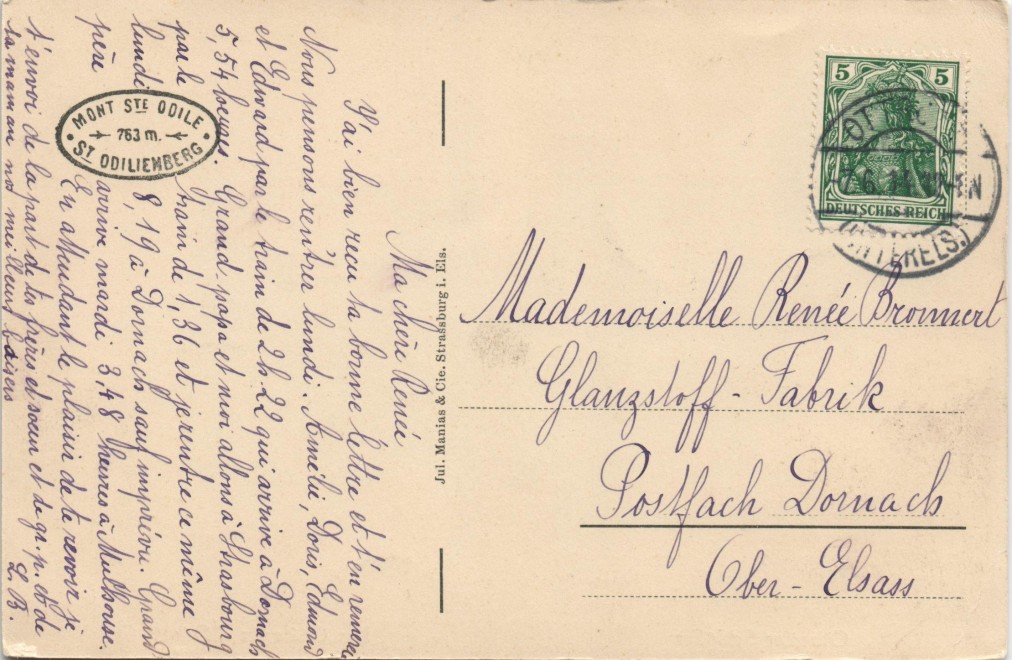 Ma chère Renée
J'ai bien recu ta bonne lettre et t'en remerci
Nous pensons rentrer lundi. Amélie, Doris, Edmond
et Edward par le train de 2h 22 qui arrive à Dornach
5,54 heures. Grand-papa et moi allons à Strasbourg
par le train de 1,36 et je rentre ce même
lundi 8,19 à Dornach sauf imprévu. Grand
père arrive mardi 3,48 heures à Mulhouse.
En attendant le plaisir de te revoir je
t'envoi de la part de tes frères et sœur et de gr. p. et de
ta maman nos meilleurs baisers
L. B.
MONT STE ODILE
763 m.
ST. ODILIENBERG
Jul. Manias & Cie. Strassburg i. Els.
5 5
DEUTSCHES REICH
OT
7.6.14.
(UNTERELS.)
Mademoiselle Renée Bronnert
Glanzstoff-Fabrik
Postfach Dornach
Ober-Elsass